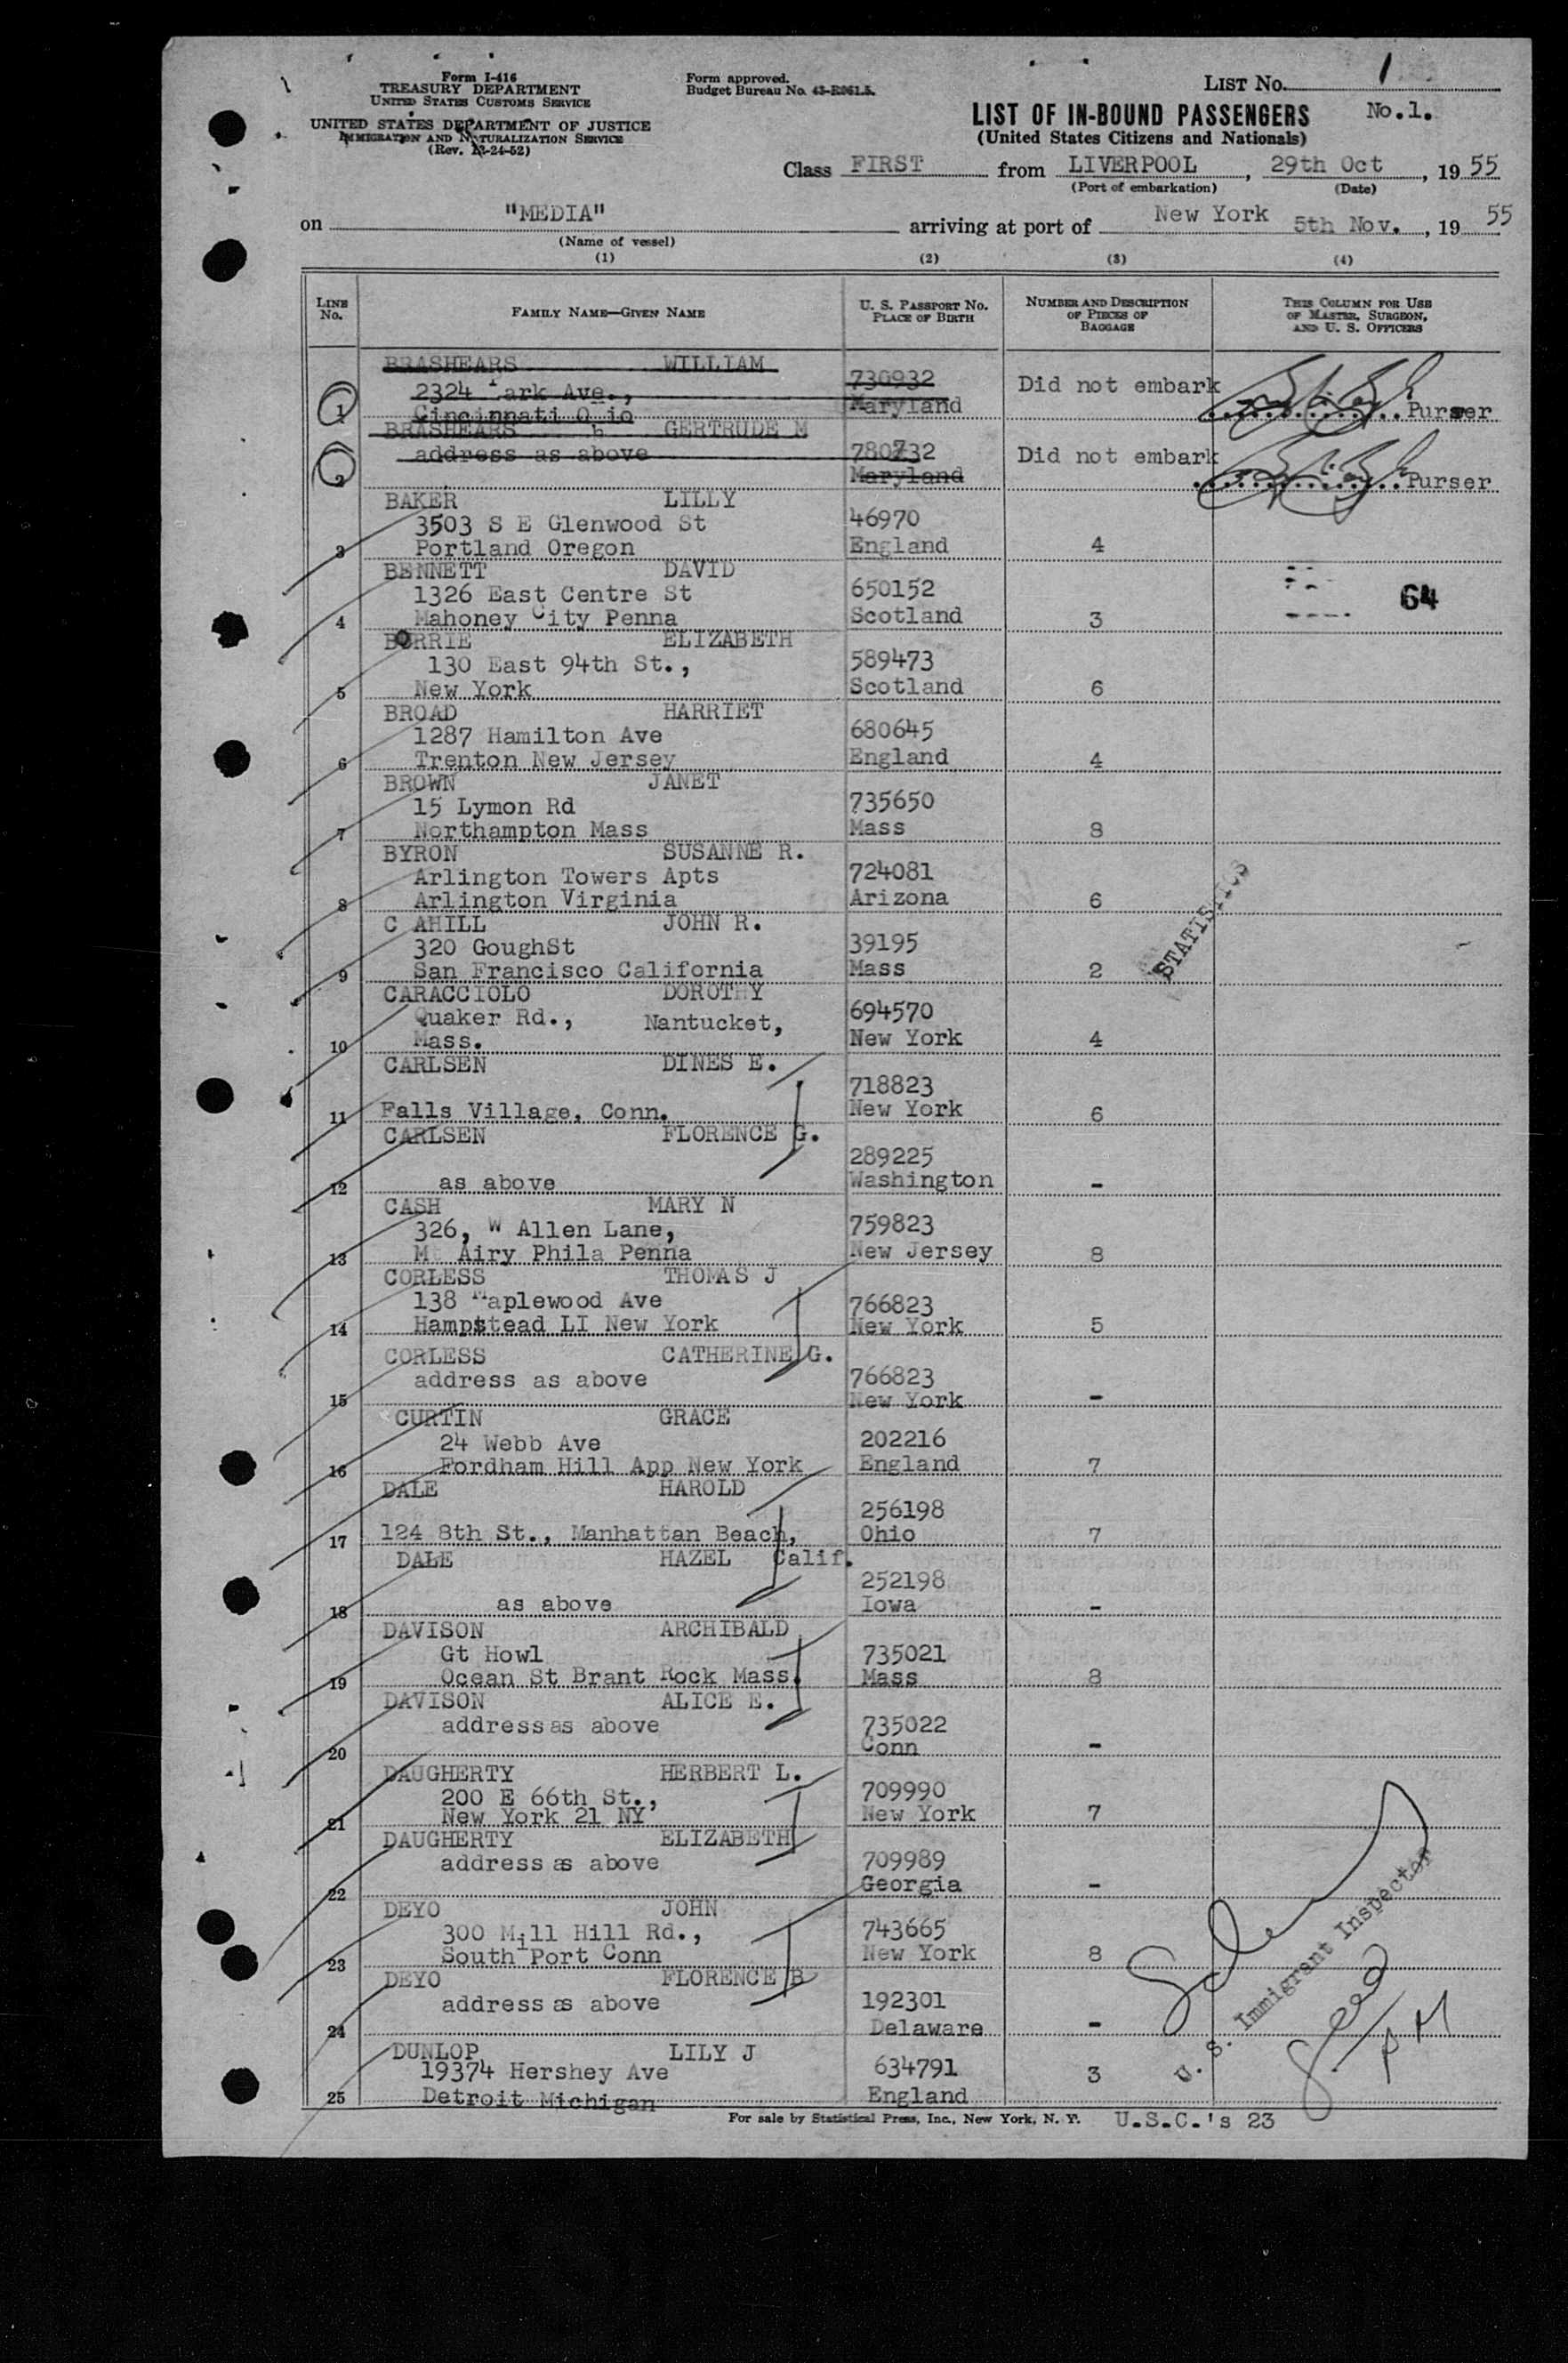 Form I-416
TREASURY DEPARTMENT
UNITED STATES CUSTOMS SERVICE
UNITED STATES DEPARTMENT OF JUSTICE
IMMIGRATION AND NATURALIZATION SERVICE
(Rev. 12-24-52)
Form approved.
Budget Bureau No. 43-R061.5.
LIST No. 1
LIST OF IN-BOUND PASSENGERS No.1.
(United States Citizens and Nationals)
Class FIRST from LIVERPOOL, 29th Oct, 1955
(Port of embarkation) (Date)
on "MEDIA" arriving at port of New York 5th Nov., 1955
(Name of vessel)
(1) (2) (3) (4)
LINE No. FAMILY NAME—GIVEN NAME U. S. PASSPORT No. PLACE OF BIRTH NUMBER AND DESCRIPTION OF PIECES OF BAGGAGE THIS COLUMN FOR USE OF MASTER, SURGEON, AND U. S. OFFICERS
BRASHEARS WILLIAM
2324 Park Ave., 730932 Did not embark
1 Cincinnati O io Maryland Purser
BRASHEARS h GERTRUDE M
address as above 780732 Did not embark
2 Maryland Purser
BAKER LILLY
3503 S E Glenwood St 46970
3 Portland Oregon England 4
BENNETT DAVID
1326 East Centre St 650152 64
4 Mahoney City Penna Scotland 3
BORRIE ELIZABETH
130 East 94th St., 589473
5 New York Scotland 6
BROAD HARRIET
1287 Hamilton Ave 680645
6 Trenton New Jersey England 4
BROWN JANET
15 Lymon Rd 735650
7 Northampton Mass Mass 8
BYRON SUSANNE R.
Arlington Towers Apts 724081
8 Arlington Virginia Arizona 6
STATISTICS
C AHILL JOHN R.
320 GoughSt 39195
9 San Francisco California Mass 2
CARACCIOLO DOROTHY
Quaker Rd., Nantucket, 694570
10 Mass. New York 4
CARLSEN DINES E.
718823
11 Falls Village, Conn. New York 6
CARLSEN FLORENCE G.
289225
12 as above Washington -
CASH MARY N
326, W Allen Lane, 759823
13 Mt Airy Phila Penna New Jersey 8
CORLESS THOMAS J
138 Maplewood Ave 766823
14 Hampstead LI New York New York 5
CORLESS CATHERINE G.
address as above 766823
15 New York -
CURTIN GRACE
24 Webb Ave 202216
16 Fordham Hill App New York England 7
DALE HAROLD
256198
17 124 8th St., Manhattan Beach, Ohio 7
DALE HAZEL Calif.
252198
18 as above Iowa -
DAVISON ARCHIBALD
Gt Howl 735021
19 Ocean St Brant Rock Mass. Mass 8
DAVISON ALICE E.
address as above 735022
20 Conn -
DAUGHERTY HERBERT L.
200 E 66th St., 709990
21 New York 21 NY New York 7
DAUGHERTY ELIZABETH
address as above 709989
22 Georgia -
DEYO JOHN
300 Mill Hill Rd., 743665
23 South Port Conn New York 8
DEYO FLORENCE B
address as above 192301
24 Delaware -
U. S. Immigrant Inspector
DUNLOP LILY J
19374 Hershey Ave 634791 3
25 Detroit Michigan England
For sale by Statistical Press, Inc., New York, N. Y. U.S.C.'s 23